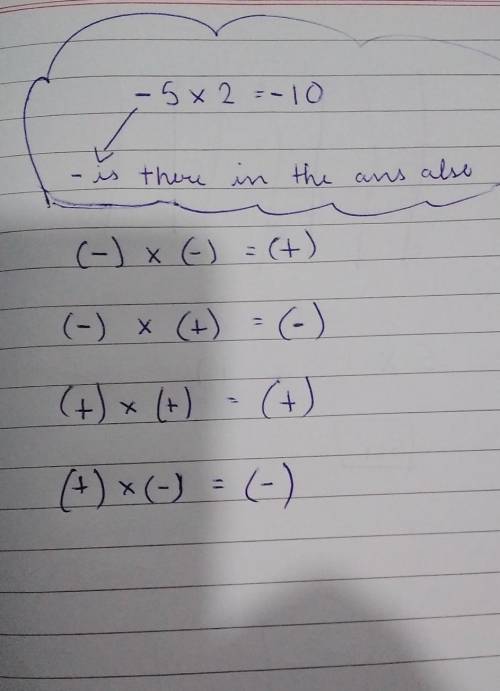 - 5 × 2 = - 10
- is there in the ans also
(-) × (-) = (+)
(-) × (+) = (-)
(+) × (+) = (+)
(+) × (-) = (-)